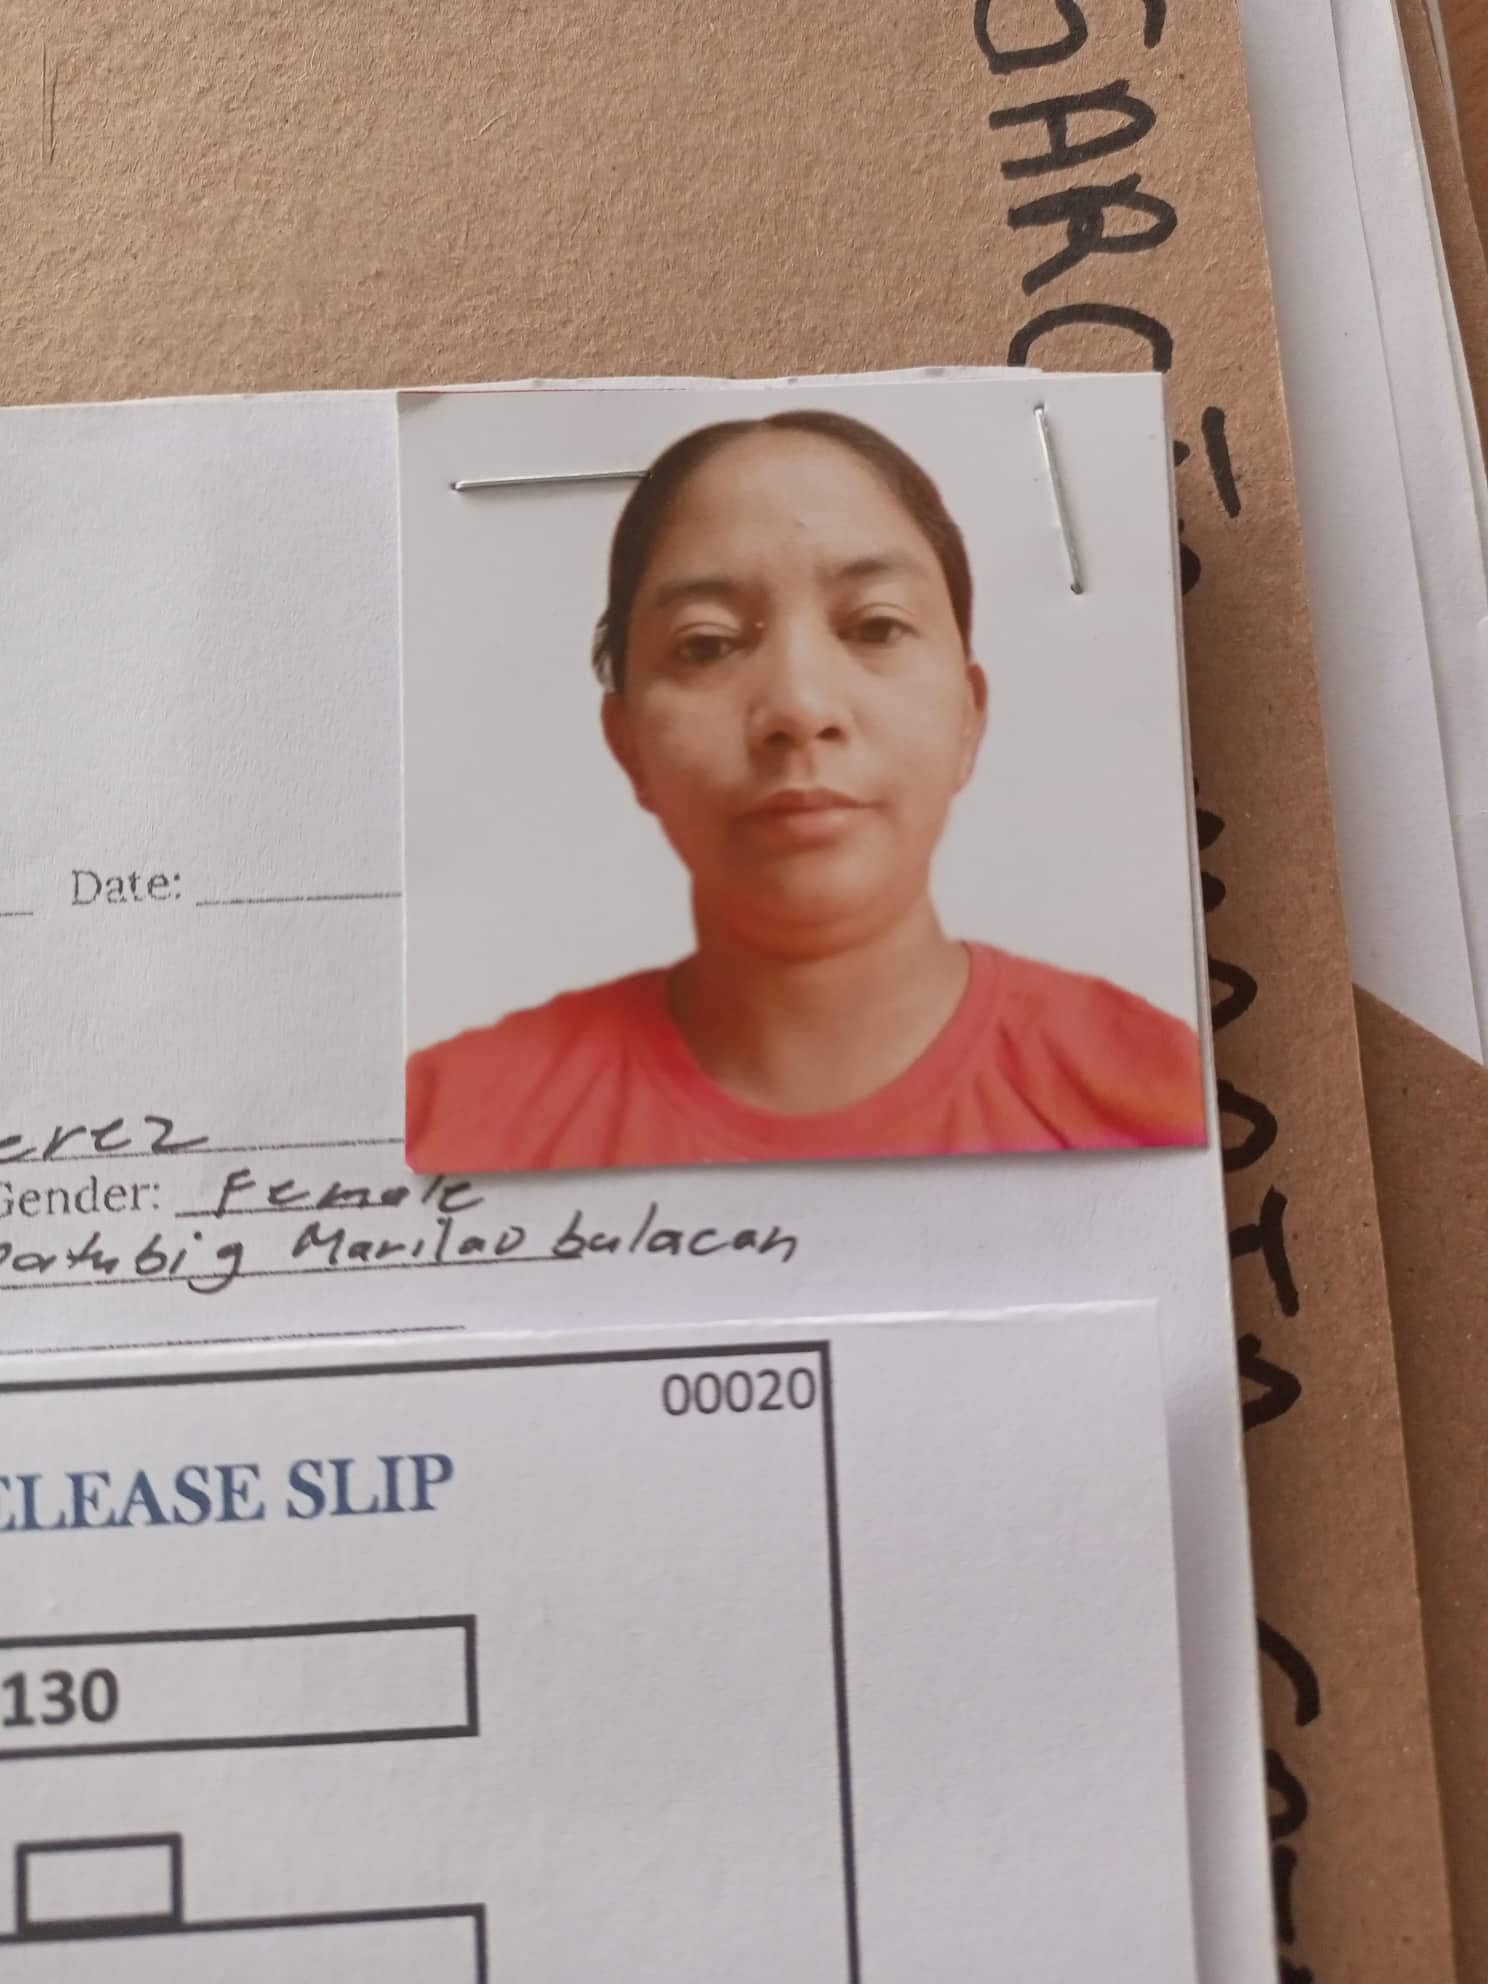 GARC
Date:
erez
Gender: Female
Patubig Marilao bulacan
00020
ELEASE SLIP
130